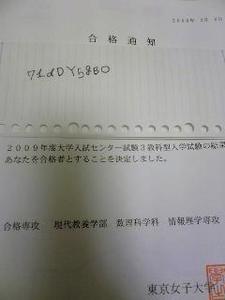 合格通知
71dDY5880
2009年度大学入試センター試験3教科型入学試験の結果
あなたを合格者とすることを決定しました。
合格専攻 現代教養学部 数理科学科 情報理学専攻
東京女子大学